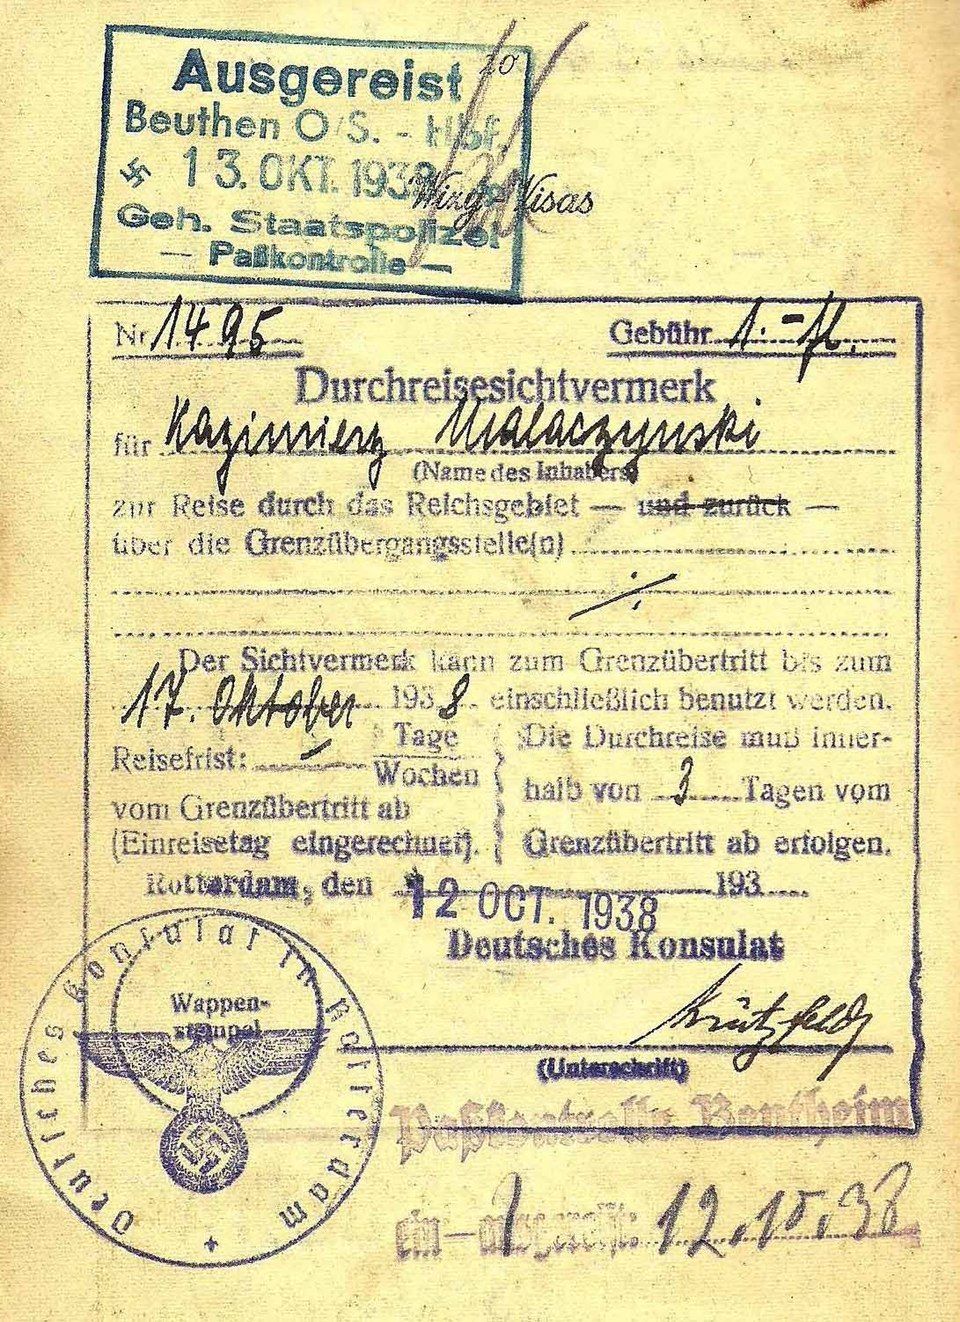 Ausgereist
Beuthen O/S. - Hbf.
13. OKT. 1938
Geh. Staatspolizei
— Paßkontrolle —
20
Visas
Nr. 1495
Gebühr 1.-fl.
Durchreisesichtvermerk
für Kazimierz Malaczynski
(Name des Inhabers)
zur Reise durch das Reichsgebiet — und zurück —
über die Grenzübergangsstelle(n)
Der Sichtvermerk kann zum Grenzübertritt bis zum
17. Oktober 1938 einschließlich benutzt werden.
Reisefrist: — Tage
Wochen
vom Grenzübertritt ab
(Einreisetag eingerechnet).
Die Durchreise muß inner-
halb von 3 Tagen vom
Grenzübertritt ab erfolgen.
Rotterdam, den 193
12 OCT. 1938
Deutsches Konsulat
Wappen-
stempel
Krützfeld
(Unterschrift)
Deutsches Konsulat in Rotterdam
Paßkontrolle Bentheim
ein-ausgereist: 12.10.38